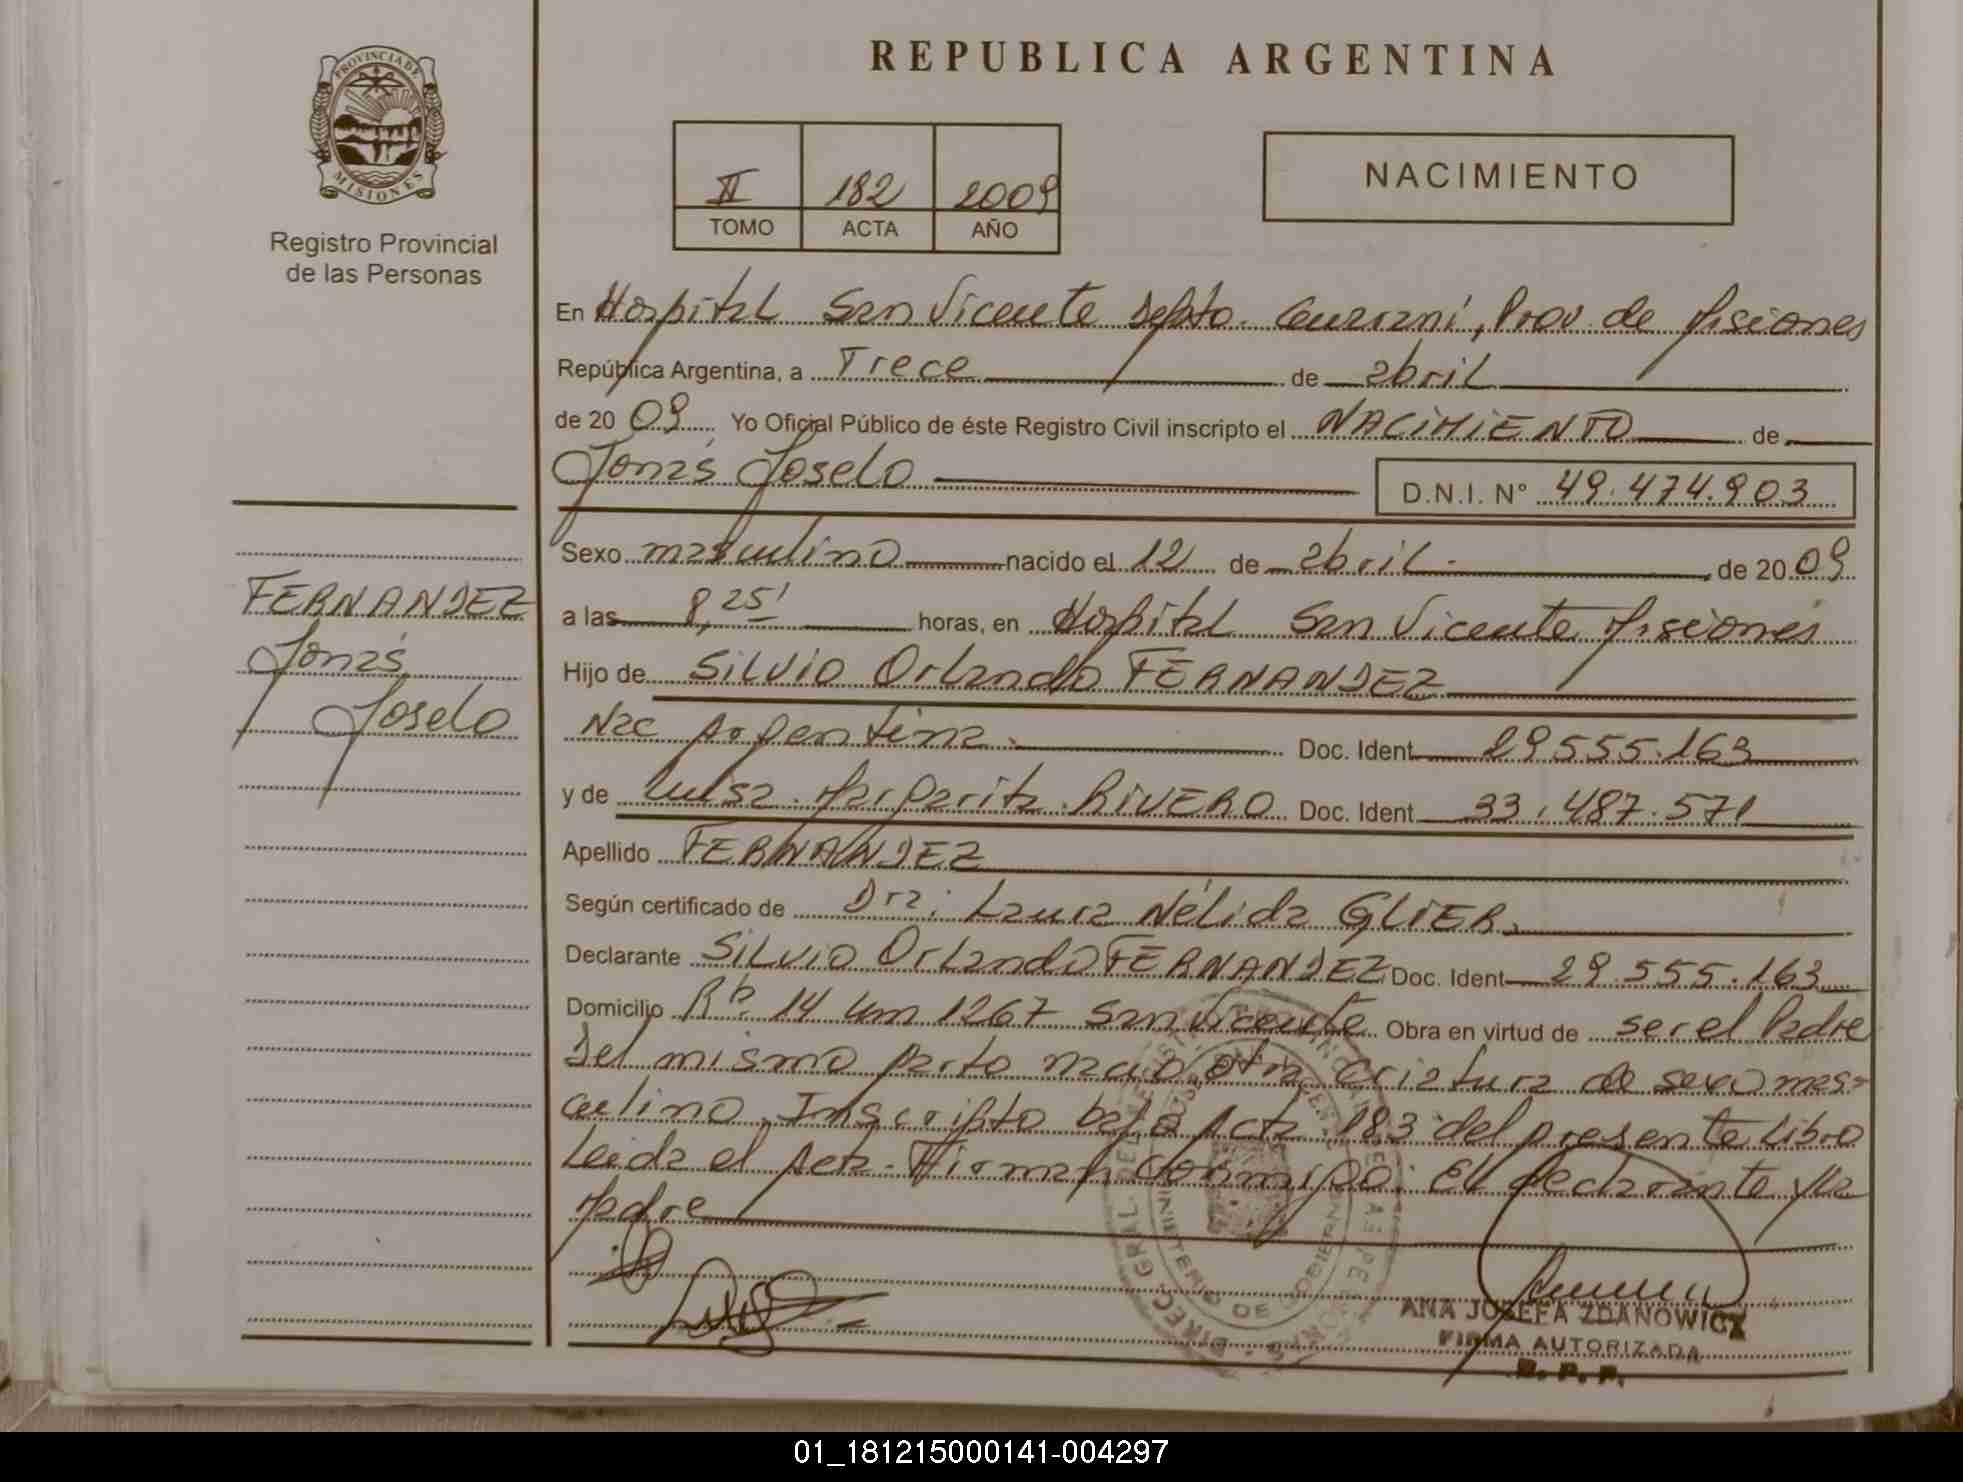 REPUBLICA ARGENTINA
PROVINCIA DE
MISIONES
Registro Provincial
de las Personas
II 182 2009
TOMO ACTA AÑO
NACIMIENTO
En Hospital San Vicente Depto. Guaraní, Prov. de Misiones
República Argentina, a Trece de abril
de 2009, Yo Oficial Público de éste Registro Civil inscripto el NACIMIENTO de
Jonás Joselo D.N.I. N° 49.474.903
Sexo masculino nacido el 12 de abril de 2009
a las 8,25' horas, en Hospital San Vicente Misiones
Hijo de Silvio Orlando FERNANDEZ
Nac Argentina. Doc. Ident 29.555.163
y de Luisa Margarita RIVERO Doc. Ident 33.487.571
Apellido FERNANDEZ
Según certificado de Dra: Laura Nélida GLIER.
Declarante Silvio Orlando FERNANDEZ Doc. Ident 29.555.163
Domicilio 14 km 1267 San Vicente Obra en virtud de ser el Padre
Del mismo parto nació otra criatura de sexo mas-
culino. Inscripto bajo Acta 183 del presente Libro
Leida el Acta. Firman conmigo: El declarante y la
Madre
FERNANDEZ
Jonás
Joselo
MINISTERIO DE GOBIERNO
ANA JOSEFA ZDANOWICZ
FIRMA AUTORIZADA
R. P. P.
01_181215000141-004297